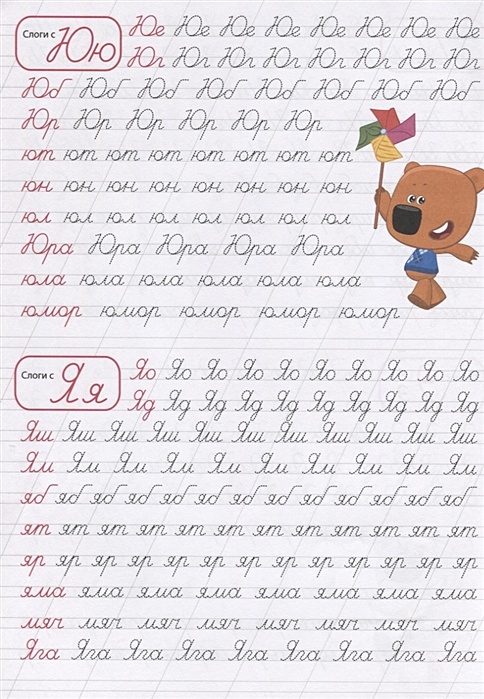 Слоги с Юю Юе Юе Юе Юе Юе Юе Юе Юе
Юг Юг Юг Юг Юг Юг Юг Юг
Юб Юб Юб Юб Юб Юб Юб Юб
Юр Юр Юр Юр Юр Юр
ют ют ют ют ют ют ют ют
юн юн юн юн юн юн юн юн
юл юл юл юл юл юл юл юл
Юра Юра Юра Юра Юра
юла юла юла юла юла юла
юмор юмор юмор юмор юмор
Слоги с Яя Яо Яо Яо Яо Яо Яо Яо Яо Яо Яо
Яд Яд Яд Яд Яд Яд Яд Яд Яд Яд
Яш Яш Яш Яш Яш Яш Яш Яш Яш Яш Яш
Ям Ям Ям Ям Ям Ям Ям Ям Ям Ям
яб яб яб яб яб яб яб яб яб яб яб яб
ят ят ят ят ят ят ят ят ят ят ят ят
яр яр яр яр яр яр яр яр яр яр яр яр яр
яма яма яма яма яма яма яма яма
мяч мяч мяч мяч мяч мяч мяч мяч
Яга Яга Яга Яга Яга Яга Яга Яга Яга